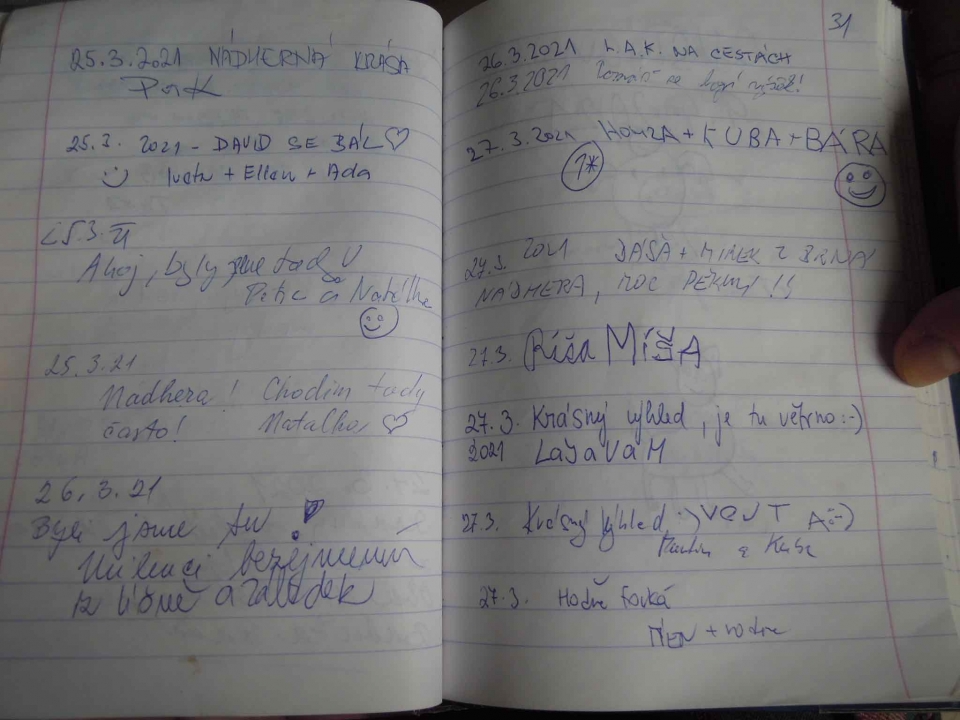 25.3.2021 NÁDHERNÁ KRÁSA
25.3. 2021 - DAVID SE BÁL ♡
:) Iveta + Ellen + Ada
25.3. 21
Ahoj, byly jsme tady
a Natálka
25.3.21
Nádhera! Chodím tady
často! Natálka ♡
26.3.21
Byli jsme tu !
Milenci bezejmenní
z Líšně a Zábrdek
31
26.3.2021 L.A.K. NA CESTÁCH
26.3.2021
27.3.2021 HONZA + KUBA + BÁRA
1*
27.3. 2021 DÁŠA + MIREK Z BRNA
NÁDHERA, MOC PĚKNÝ !!
27.3. Ríša MÍŠA
27.3. Krásný výhled, je tu větrno :-)
2021 LaJaVaM
27.3. Krásný výhled :)
Martin a Kuba
27.3. Hodně fouká